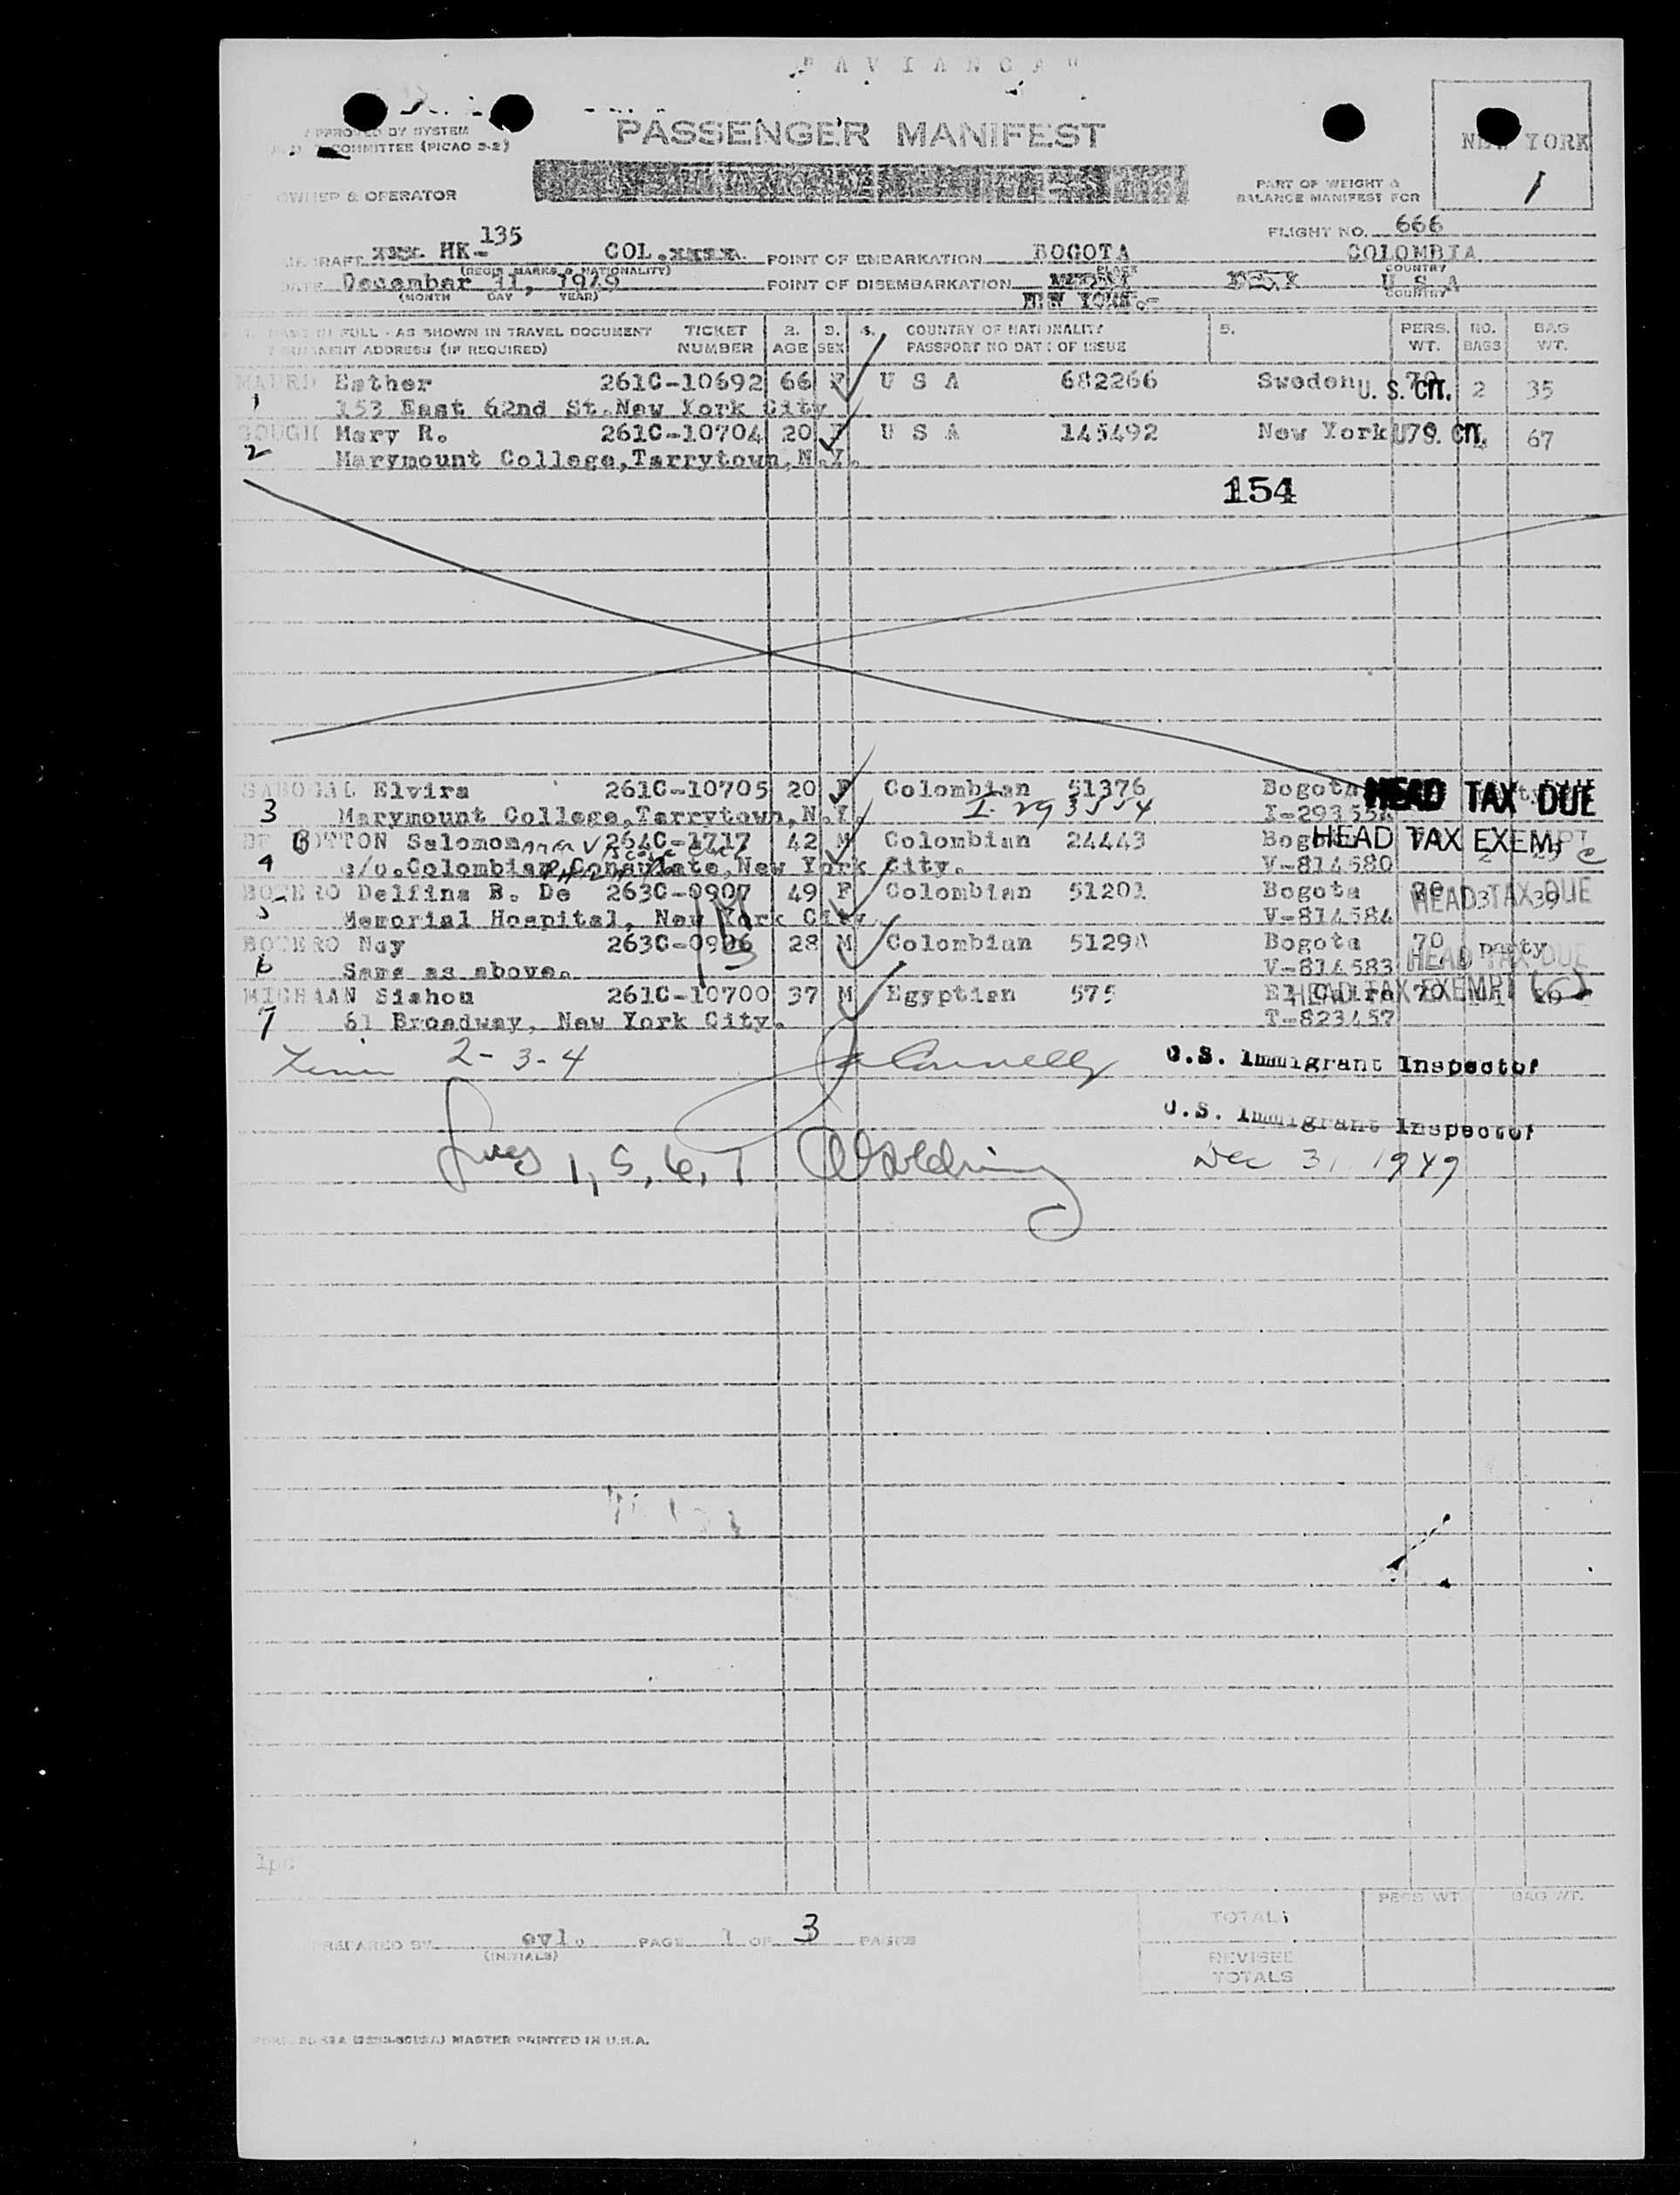 "AVIANCA"
APPROVED BY SYSTEM
COMMITTEE (PICAO 5-2)
PASSENGER MANIFEST
NEW YORK
1
OWNER & OPERATOR
PART OF WEIGHT &
BALANCE MANIFEST FOR
FLIGHT NO. 666
AIRCRAFT HK-135 COL. POINT OF EMBARKATION BOGOTA COLOMBIA
(REGIS MARKS & NATIONALITY) PLACE COUNTRY
DATE December 31, 1949 POINT OF DISEMBARKATION U S A
(MONTH DAY YEAR) NEW YORK.- COUNTRY
NAME IN FULL - AS SHOWN IN TRAVEL DOCUMENT TICKET 2. 3. 4. COUNTRY OF NATIONALITY 5. PERS. NO. BAG
PERMANENT ADDRESS (IF REQUIRED) NUMBER AGE SEX PASSPORT NO DATE OF ISSUE WT. BAGS WT.
MAURO Esther 261C-10692 66 F U S A 682266 Sweden U. S. CIT. 2 35
1 153 East 62nd St. New York City
GOUGH Mary R. 261C-10704 20 F U S A 145492 New York U. S. CIT. 67
2 Marymount College, Tarrytown, N.Y.
154
SABOGAL Elvira 261C-10705 20 F Colombian 51376 Bogota HEAD TAX DUE
3 Marymount College, Tarrytown, N.Y. I-293554 I-293554
DE BOTTON Salomon 264C-1717 42 M Colombian 24443 Bogota HEAD TAX EXEMPT
4 c/o. Colombian Consulate, New York City. V-814580
BOTERO Delfina B. De 263C-0907 49 F Colombian 51201 Bogota HEAD TAX DUE
5 Memorial Hospital, New York City. V-814584
BOTERO Nay 263C-0906 28 M Colombian 5129 Bogota 70 party HEAD TAX DUE
6 Same as above. V-814583
MICHAAN Siahou 261C-10700 37 M Egyptian 575 El Cairo 70 HEAD TAX EXEMPT (C)
7 61 Broadway, New York City. T-823457
2-3-4 U.S. Immigrant Inspector
U.S. Immigrant Inspector
1, 5, 6, 7 Dec 31 1949
lpc
PERS WT. BAG WT.
TOTAL:
PREPARED BY evl. PAGE 1 OF 3 PAGES
(INITIALS)
REVISED
TOTALS
MASTER PRINTED IN U.S.A.